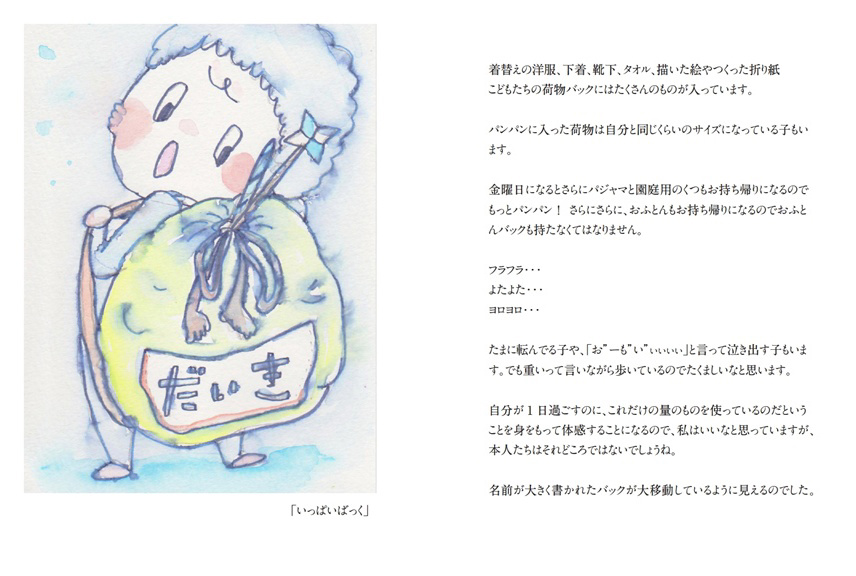 だいき
「いっぱいばっく」
着替えの洋服、下着、靴下、タオル、描いた絵やつくった折り紙
こどもたちの荷物バックにはたくさんのものが入っています。
パンパンに入った荷物は自分と同じくらいのサイズになっている子もい
ます。
金曜日になるとさらにパジャマと園庭用のくつもお持ち帰りになるので
もっとパンパン！ さらにさらに、おふとんもお持ち帰りになるのでおふと
んバックも持たなくてはなりません。
フラフラ・・・
よたよた・・・
ヨロヨロ・・・
たまに転んでる子や、「お”ーも”い”ぃぃぃぃ」と言って泣き出す子もいま
す。でも重いって言いながら歩いているのでたくましいなと思います。
自分が１日過ごすのに、これだけの量のものを使っているのだという
ことを身をもって体感することになるので、私はいいなと思っていますが、
本人たちはそれどころではないでしょうね。
名前が大きく書かれたバックが大移動しているように見えるのでした。